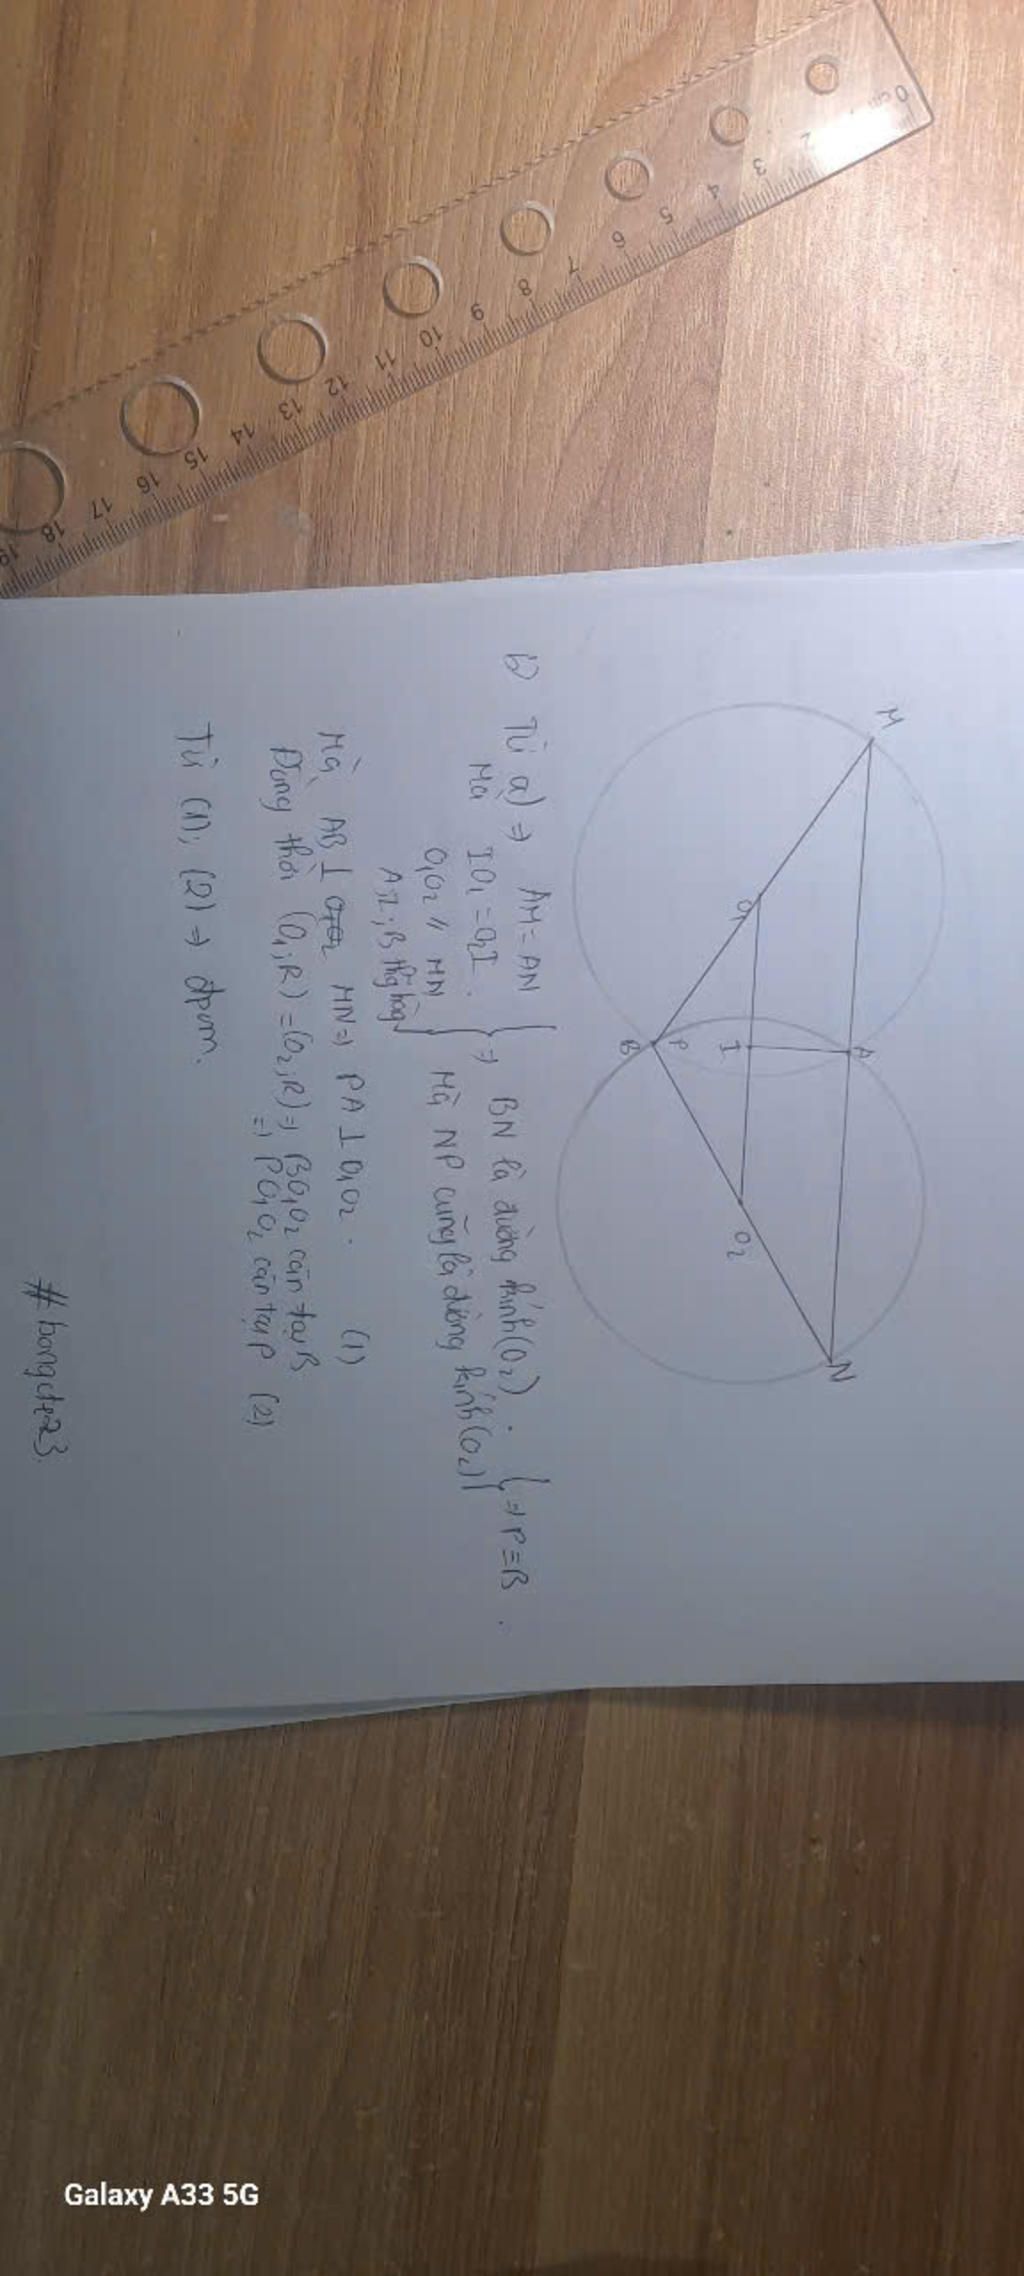 M
A
N
O₁
I
O₂
P
B
b) Từ a) ⇒ AM = AN
Mà IO₁ = O₂I.
O₁O₂ // MN
A, I, B thg hàng
⇒ BN là đường kính (O₂).
Mà NP cũng là đường kính (O₂)
⇒ P ≡ B.
Mà AB ⊥ MN ⇒ PA ⊥ O₁O₂. (1)
Đồng thời (O₁; R) = (O₂; R) ⇒ BO₁O₂ cân tại B
⇒ PO₁O₂ cân tại P (2)
Từ (1), (2) ⇒ đpcm.
0 cm
2
3
4
5
6
7
8
9
10
11
12
13
14
15
16
17
18
19
Galaxy A33 5G